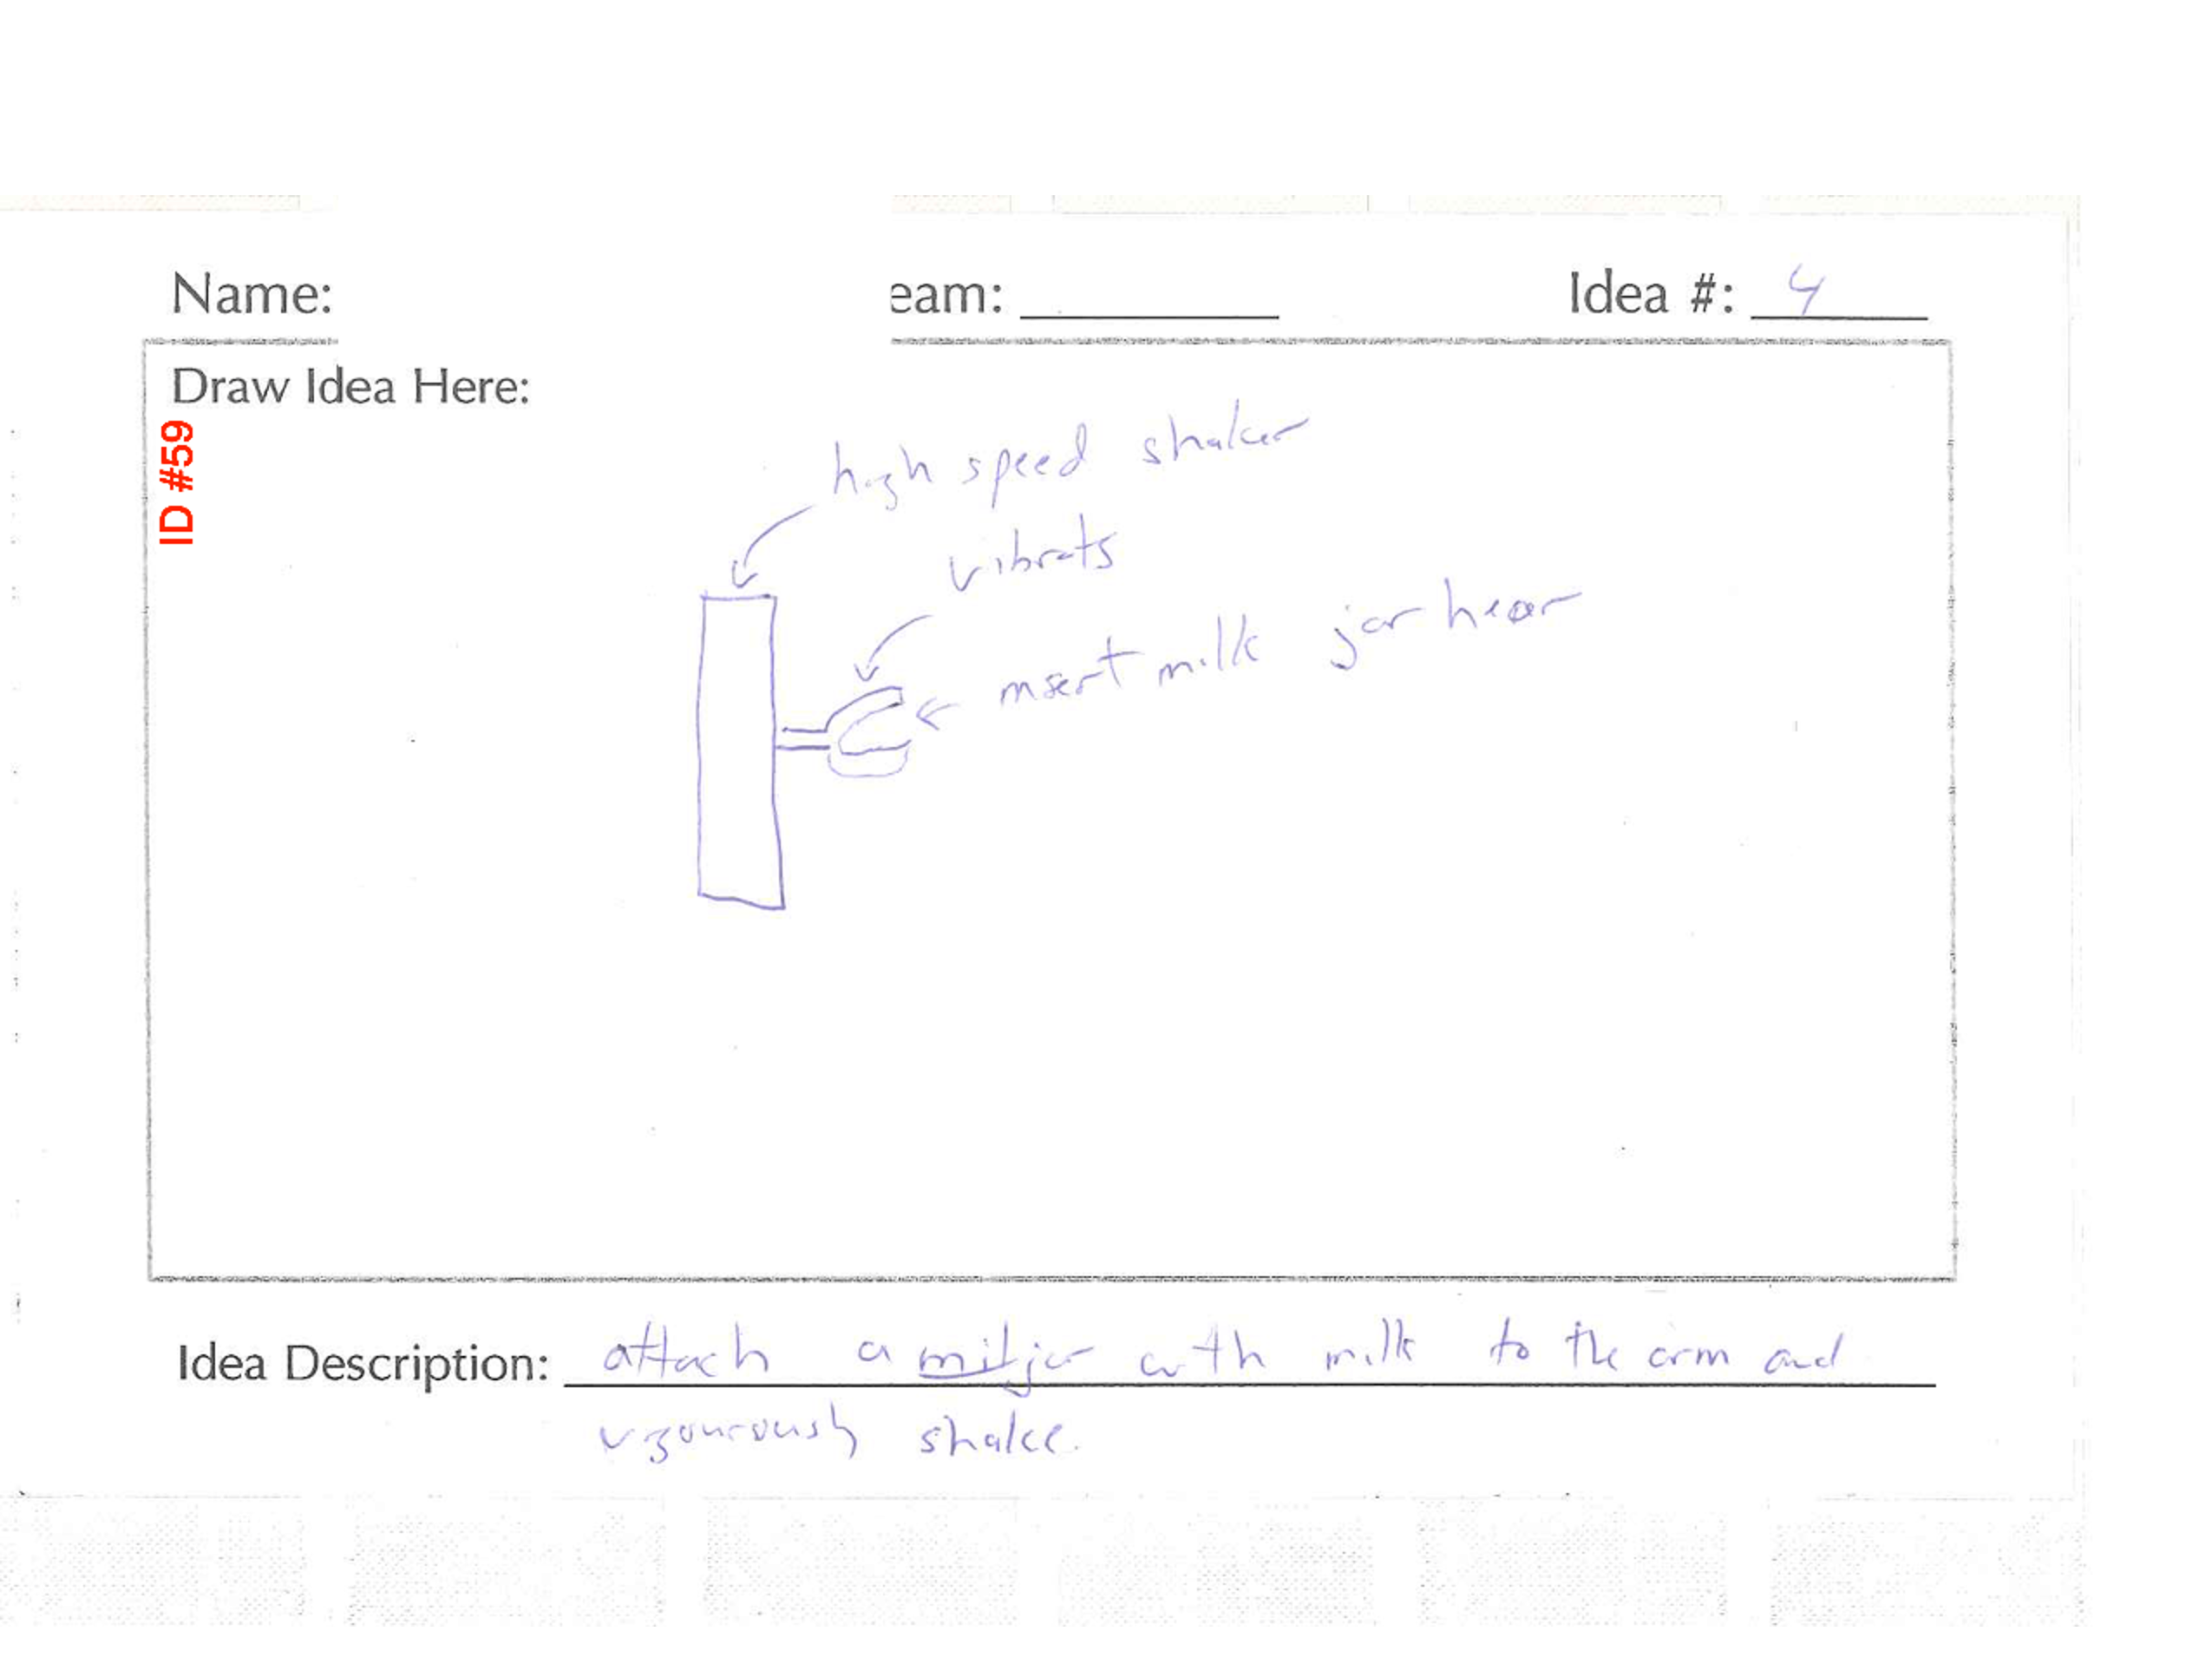 Name: eam: Idea #: 4
Draw Idea Here:
ID #59
high speed shaker
vibrats
insert milk jar hear
Idea Description: attach a jar with milk to the arm and
vigourously shake.